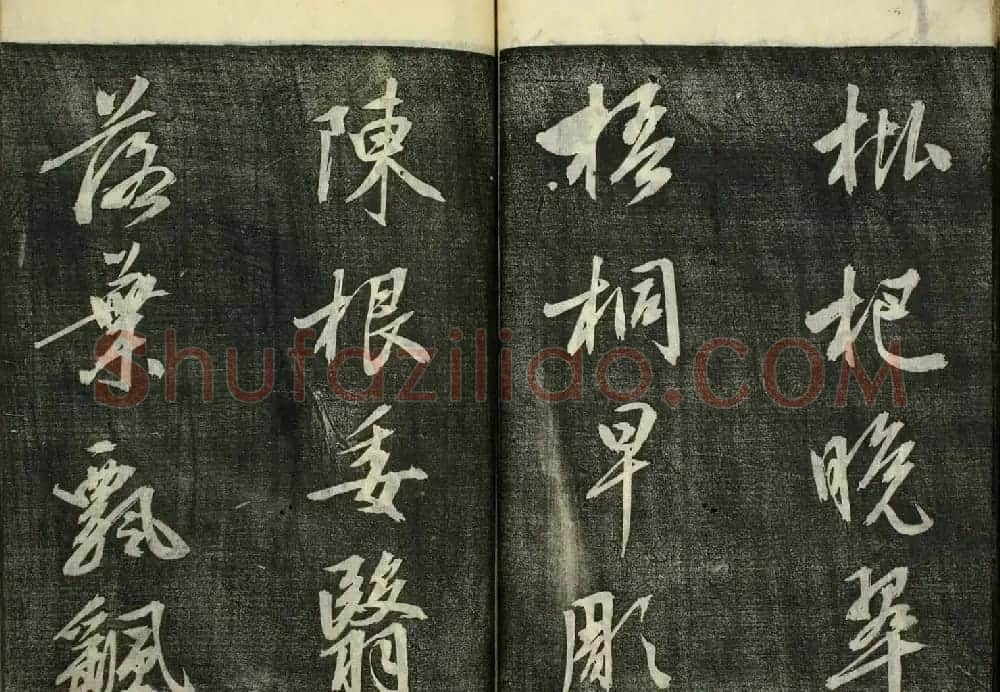 枇杷晚翠
梧桐早彫
陳根委翳
落葉飄颻
Shufaziliao.COM